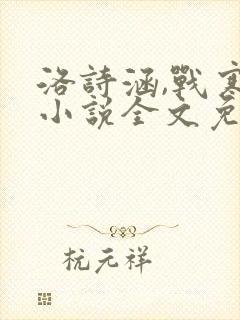 洛詩涵,戰寒
小說全文免
杭元祥